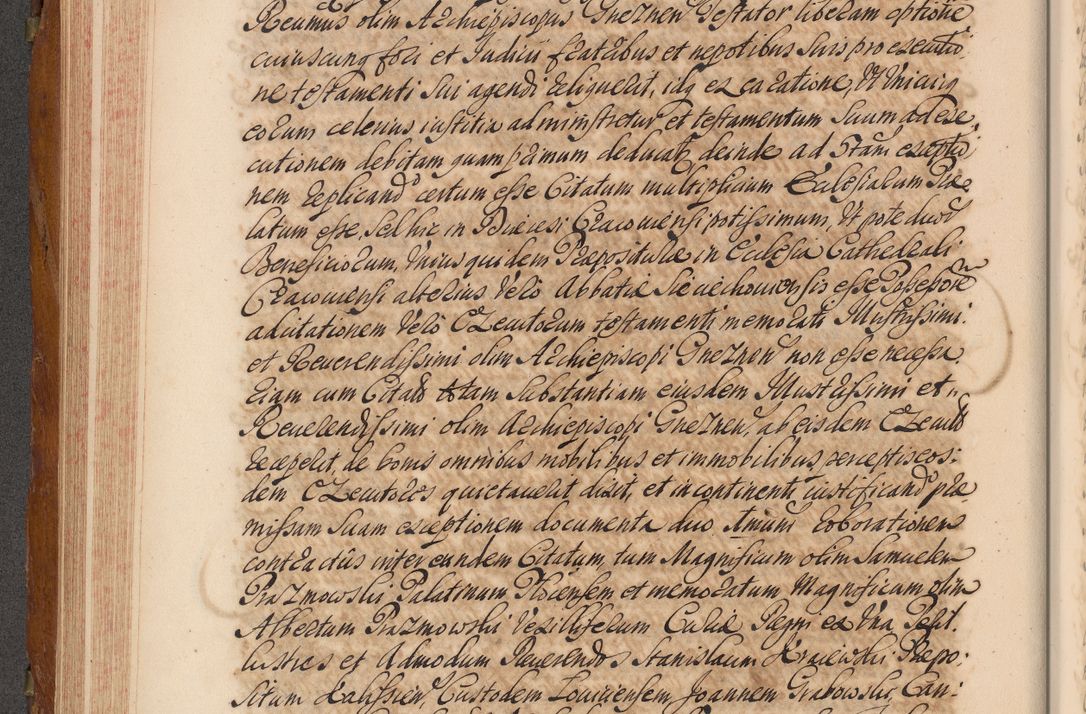 Reumus olim Archiepiscopus Gneznen Testator liberam optione
cuiuscunq fori et Iudicii fratribus et nepotibus suis pro executio
ne testamenti sui agendi reliquerit, idq ex ea ratione, Vt Vnicuiq
eorum celerius iustitia administretur et testamentum suum ad exe
cutionem debitam quam primum deducatr deinde ad Stani exceptio
nem replicando certum esse Citatum multiplicium Ecclesiarum Prae
latum esse, sed hic in Diaecesi Cracouiensi potissimum, Vt pote duor
Beneficiorum, Vnius quidem Praepositurae in Ecclesia Cathedrali
Cracouiensi alterius Vero Abbatiae Sieciechouiensis esse Possessore
ad citationem Vero Executorum testamenti memorati Illustrissimi
et Reuerendissimi olim Archiepiscopi Gneznen non esse necessa
riam cum Citatus totam substantiam eiusdem Illustrissimi et
Reuerendissimi olim Archiepiscopi Gneznen, ab eisdem Executor
receperit, de bonis omnibus mobilibus et immobilibus perceptis eos:
dem Executores quietauerit dixit, et in continenti iustificando prae
missam suam exceptionem documenta duo primum roborationem
contractus inter eundem Citatum, tum Magnificum olim Samuelem
Prazmowski Palatinum Plocensem et memoratum Magnificum olim
Albertum Prazmowski Vexilliferum Curiae Regni ex Vna Perill.
lustres et Admodum Reuerendos Stanislaum Kraiewski Praepo:
situm Kalissien, Custodem Louiciensem, Joannem Grabowski, Can: